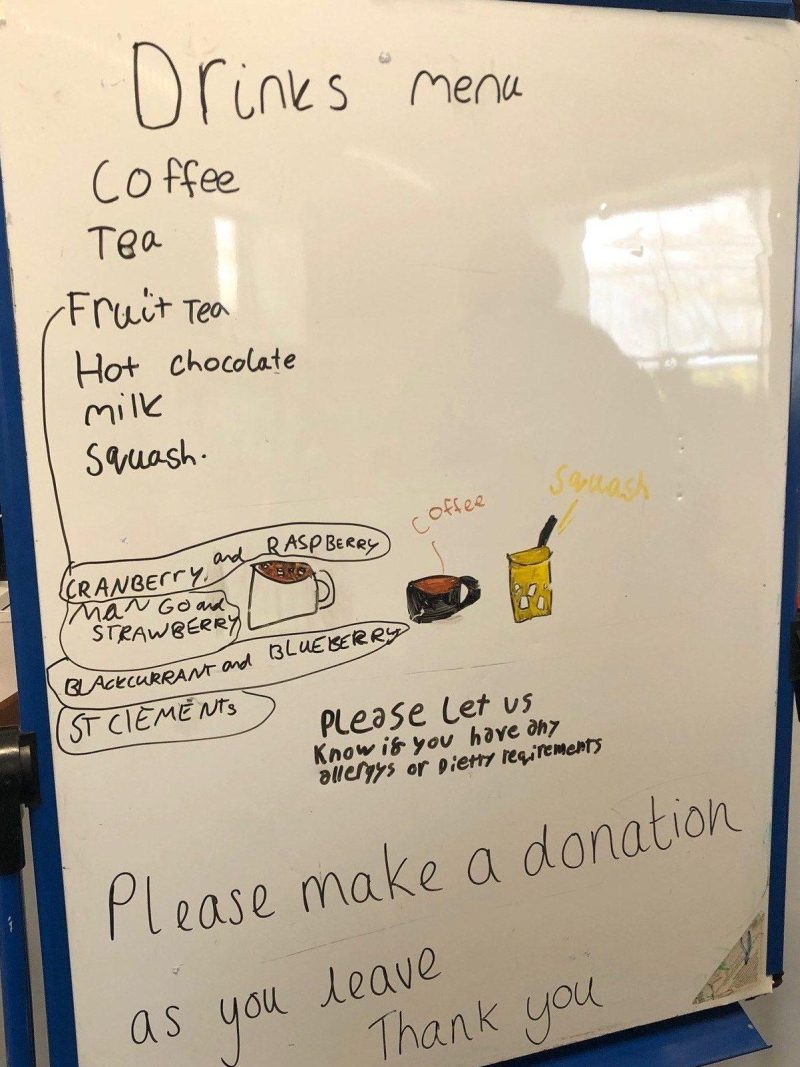 Drinks menu
Coffee
Tea
Fruit Tea
Hot chocolate
milk
Squash.
Coffee
Squash
CRANBERRY, and RASPBERRY
MANGO and
STRAWBERRY
BLACKCURRANT and BLUEBERRY
ST ClEMENTs
PLease Let us
Know if you have any
allergys or Dietty reqirements
Please make a donation
as you leave
Thank you